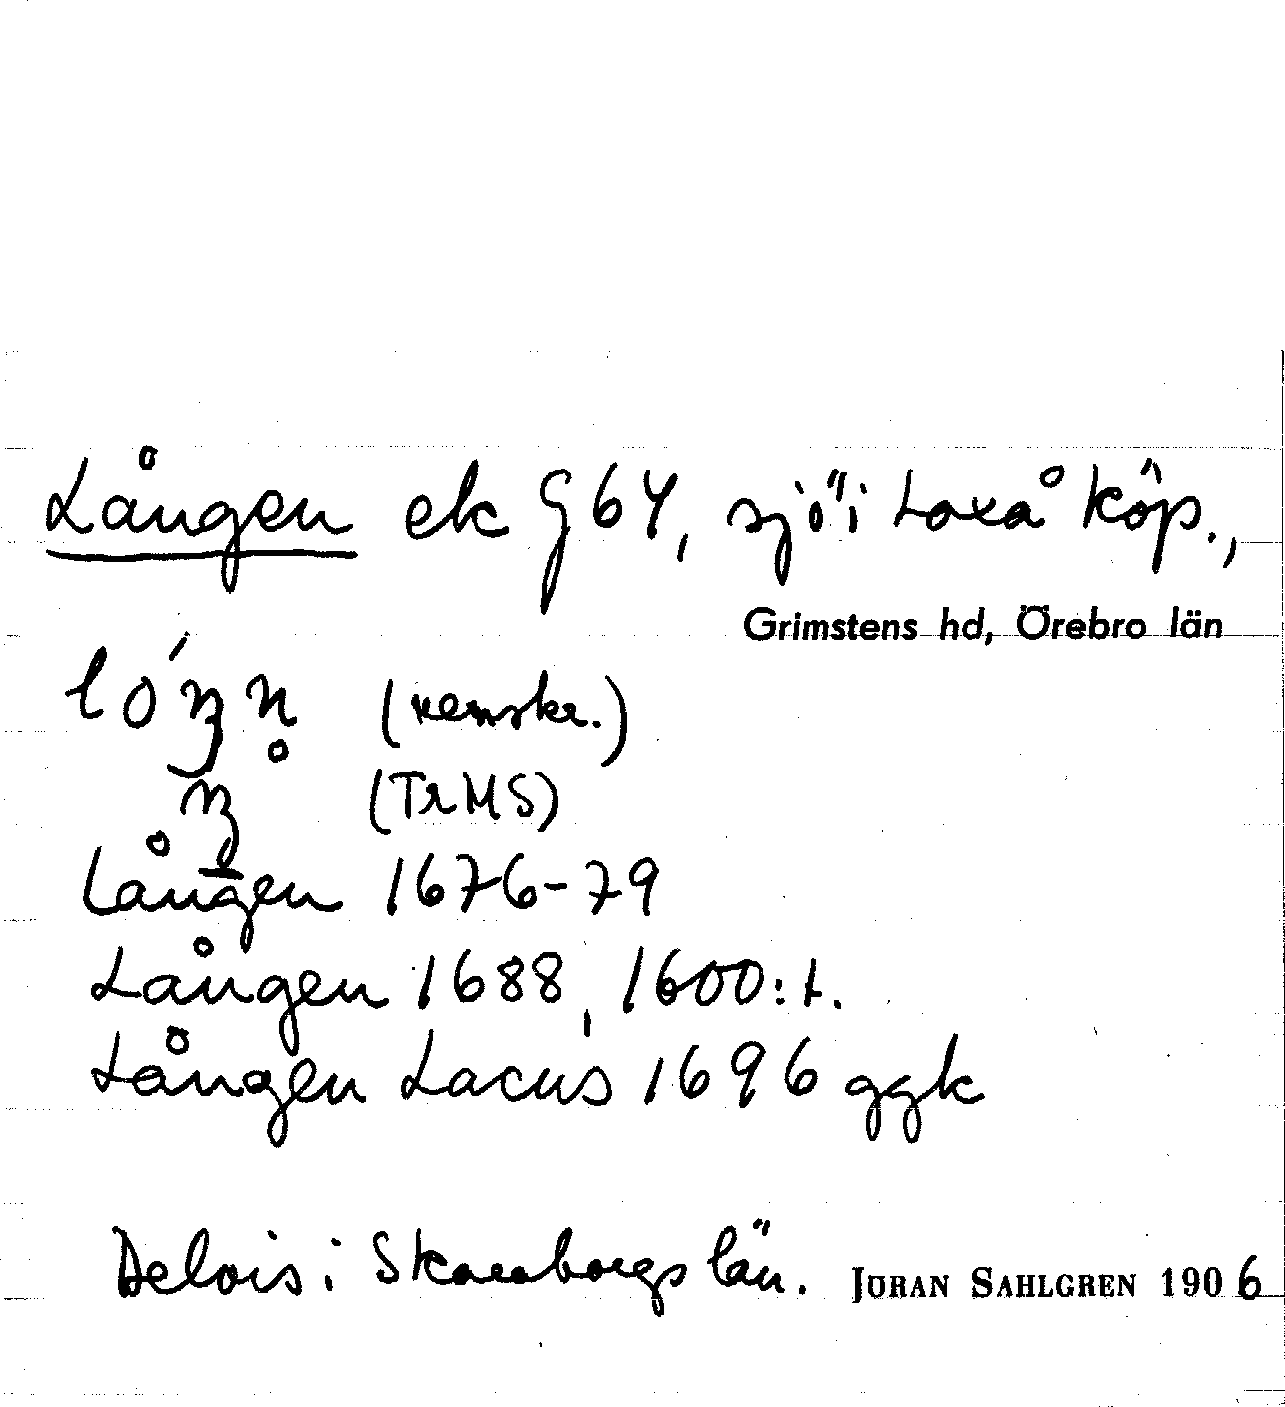 Lången ek G 64, sjö i Laxå köp.,
Grimstens hd, Örebro län
(renskr.)
(TrMS)
Lången 1676-79
Lången 1688, 1600:t.
Lången Lacus 1696 ggk
Delvis i Skaraborgs län. JÖRAN SAHLGREN 1906